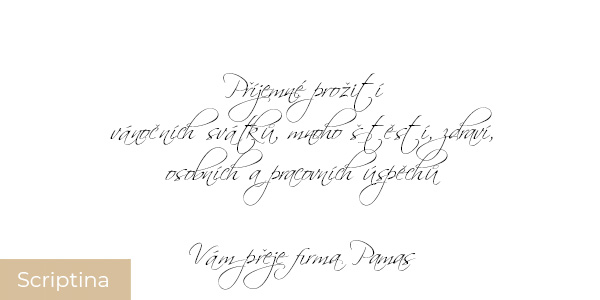 Příjemné prožití
vánočních svátků, mnoho štěstí, zdraví,
osobních a pracovních úspěchů
Vám přeje firma Pamas
Scriptina